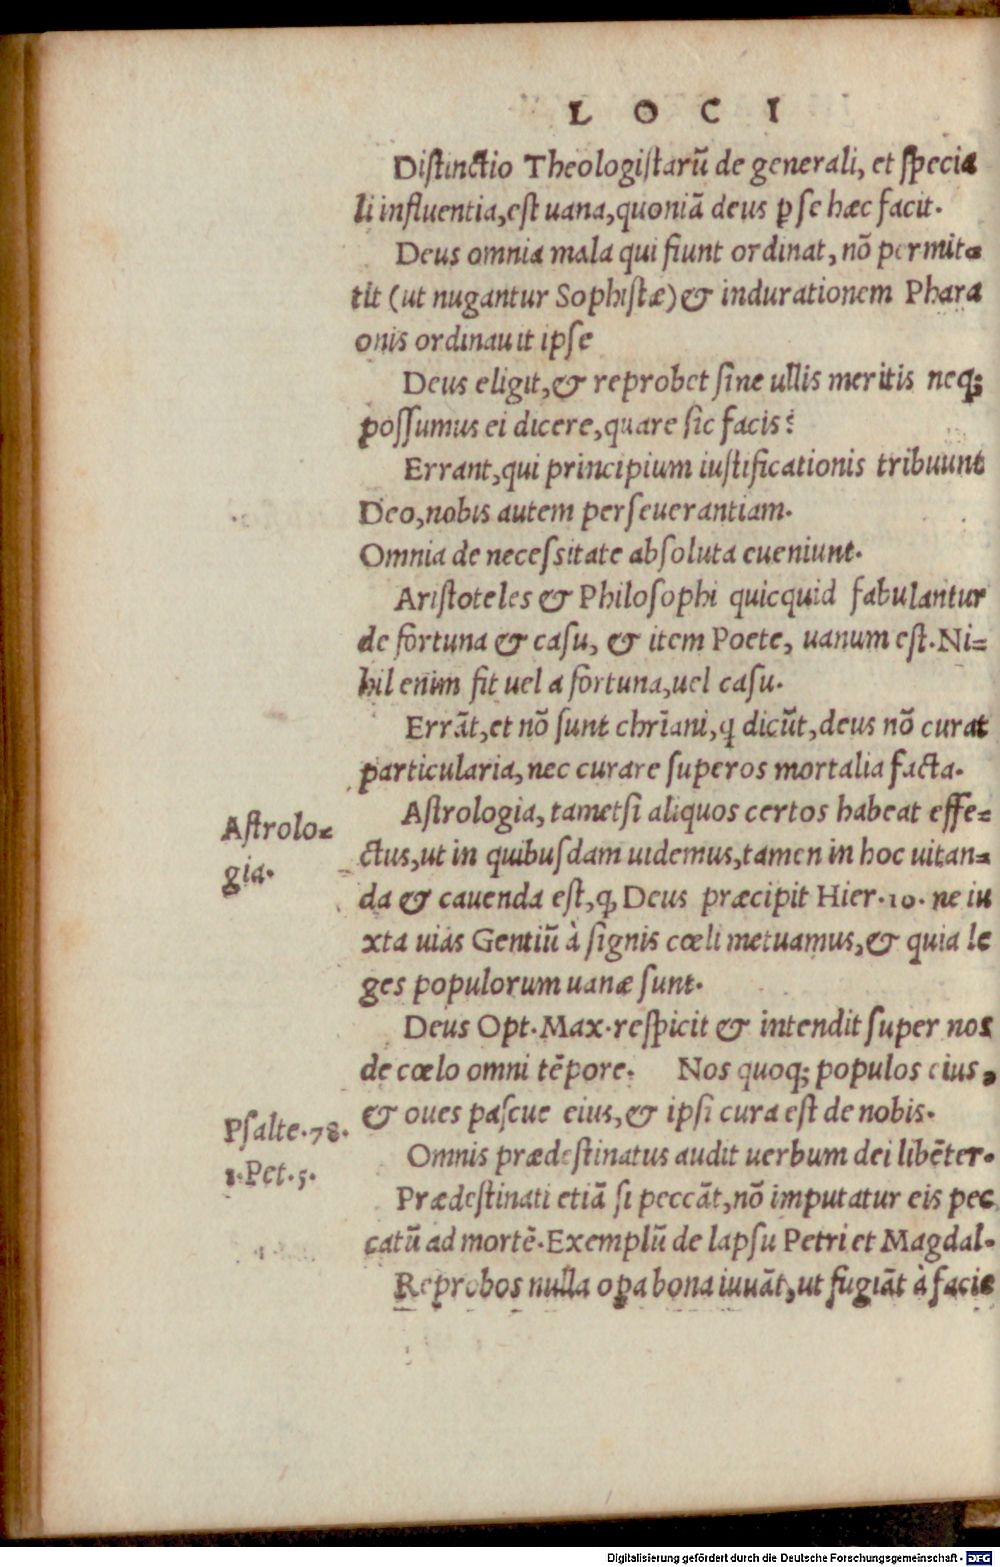 L O C I
Distinctio Theologistarũ de generali, et specia
li influentia, est uana, quoniã deus ꝑ se hæc facit.
Deus omnia mala qui fiunt ordinat, nõ permit=
tit (ut nugantur Sophistæ) & indurationem Phara
onis ordinauit ipse
Deus eligit, & reprobet sine ullis meritis neq;
possumus ei dicere, quare sic facis?
Errant, qui principium iustificationis tribuunt
Deo, nobis autem perseuerantiam.
Omnia de necessitate absoluta eueniunt.
Aristoteles & Philosophi quicquid fabulantur
de fortuna & casu, & item Poete, uanum est. Ni=
hil enim fit uel a fortuna, uel casu.
Errãt, et nõ sunt chrĩani, q dicũt, deus nõ curat
particularia, nec curare superos mortalia facta.
Astrolo=
gia.
Astrologia, tametsi aliquos certos habeat effe=
ctus, ut in quibusdam uidemus, tamen in hoc uitan=
da & cauenda est, ꝙ Deus præcipit Hier. 10. ne iu
xta uias Gentiũ à signis cœli metuamus, & quia le
ges populorum uanæ sunt.
Deus Opt. Max. respicit & intendit super nos
de cœlo omni tẽpore. Nos quoq; populos eius,
Psalte. 78.
1. Pet. 5.
& oues pascue eius, & ipsi cura est de nobis.
Omnis prædestinatus audit uerbum dei libẽter.
Prædestinati etiã si peccãt, nõ imputatur eis pec
catũ ad mortẽ. Exemplũ de lapsu Petri et Magdal.
Reprobos nulla oꝑa bona iuuãt, ut fugiãt à facie
Digitalisierung gefördert durch die Deutsche Forschungsgemeinschaft - DFG